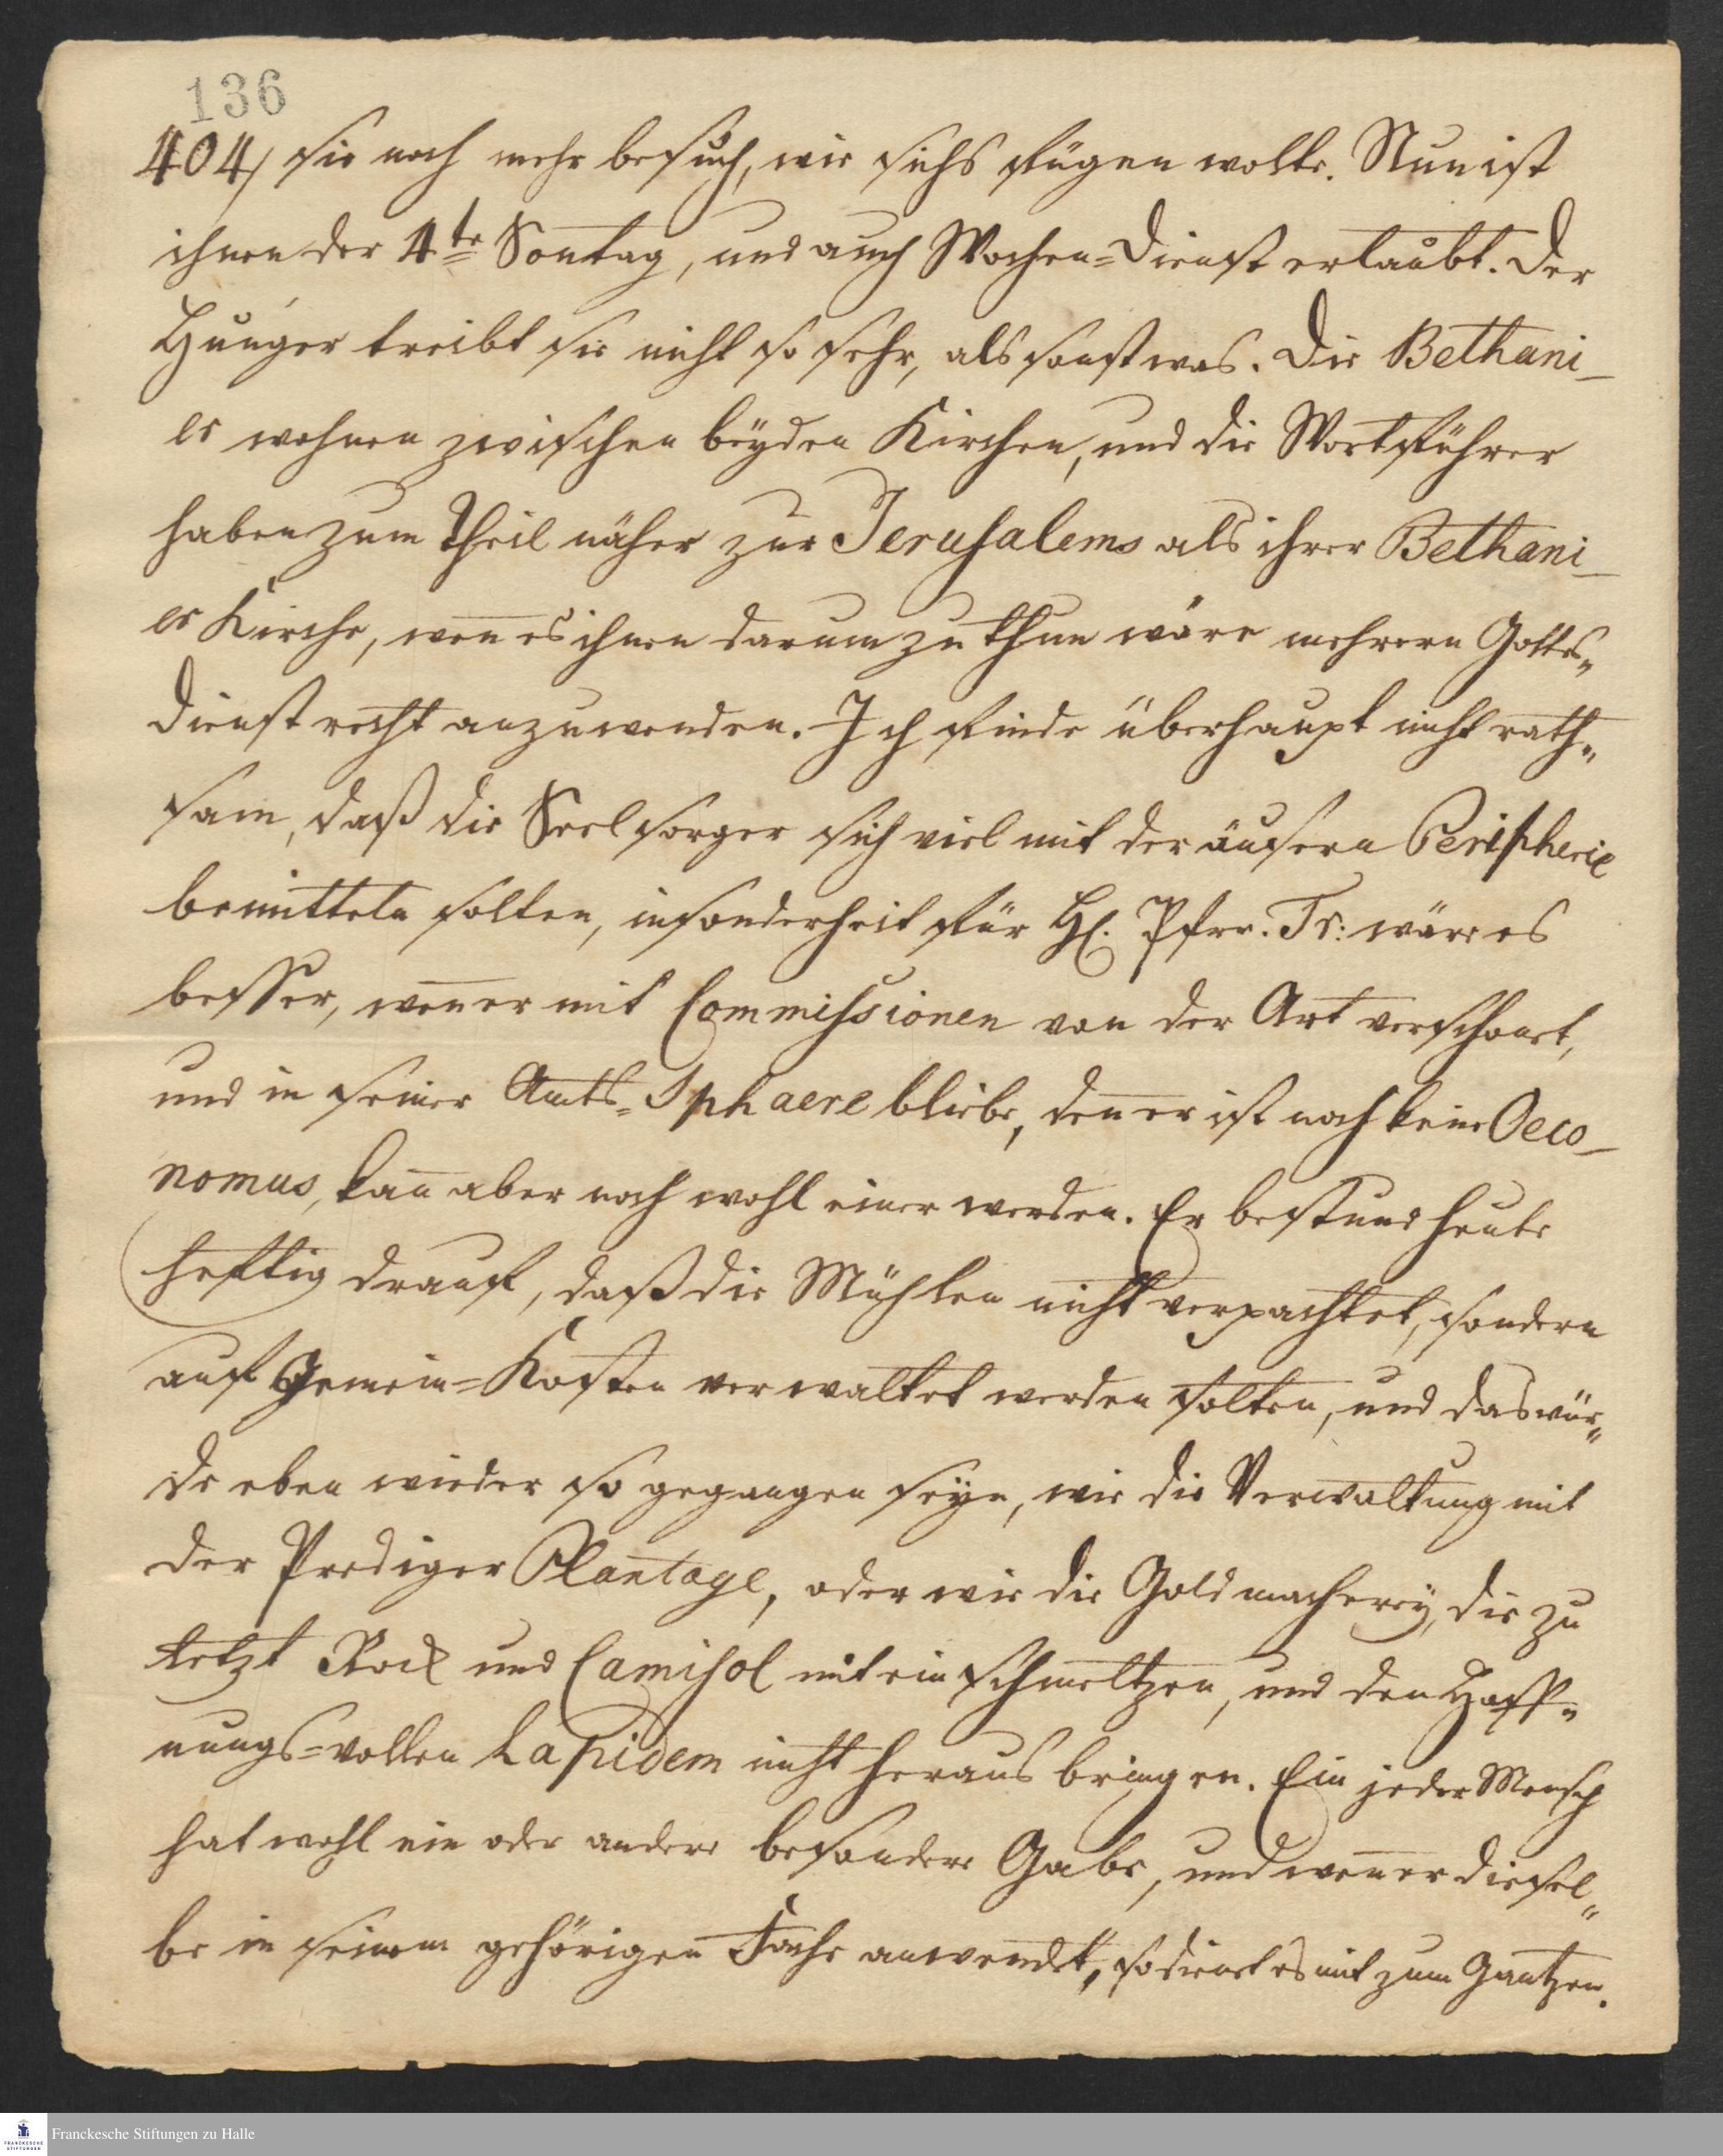 136
404/ sie noch mehr besuch, wie sichs fügen wolte. Nun ist
ihnen der 4te Sontag, und auch Wochen=Dienst erlaubt. Der
Hunger treibt sie nicht so sehr, als sonst was. Die Bethani_
er wohnen zwischen beyden Kirchen, und die Wortführer
haben zum Theil näher zur Jerusalems als ihrer Bethani_
er Kirche, wen̄ es ihnen darum zu thun wäre mehrern Gottes=
dienst recht anzuwenden. Ich finde überhaupt nicht rath=
sam, daß die Seelsorger sich viel mit der äusern Peripherie
bemitteln solten, insonderheit für H. Pfrr. Tr: wäre es
besser, wen̄ er mit Commissionen von der Art verschonet,
und in seiner Amts=Sphaere bliebe, den̄ er ist noch keine Oeco_
nomus, kan̄ aber noch wohl einer werden. Er bestund heute
heftig drauf, daß die Mühlen nicht verpachtet, sondern
auf Gemein=Kosten verwaltet werden solten, und das wür=
de eben wieder so gegangen seyn, wie die Verwaltung mit
der Prediger Plantage, oder wie die Goldmacherey, die zu
letzt Rock und Camisol mit ein schmeltzen, und den Hoff=
nungs=vollen Lapidem nicht heraus bringen. Ein jeder Mensch
hat wohl ein oder andere besondere Gabe, und wen̄ er diesel=
be in seinem gehörigen Fache anwendet, so dienet es mit zum Gantzen.
Franckesche Stiftungen zu Halle
FRANCKESCHE
STIFTUNGEN